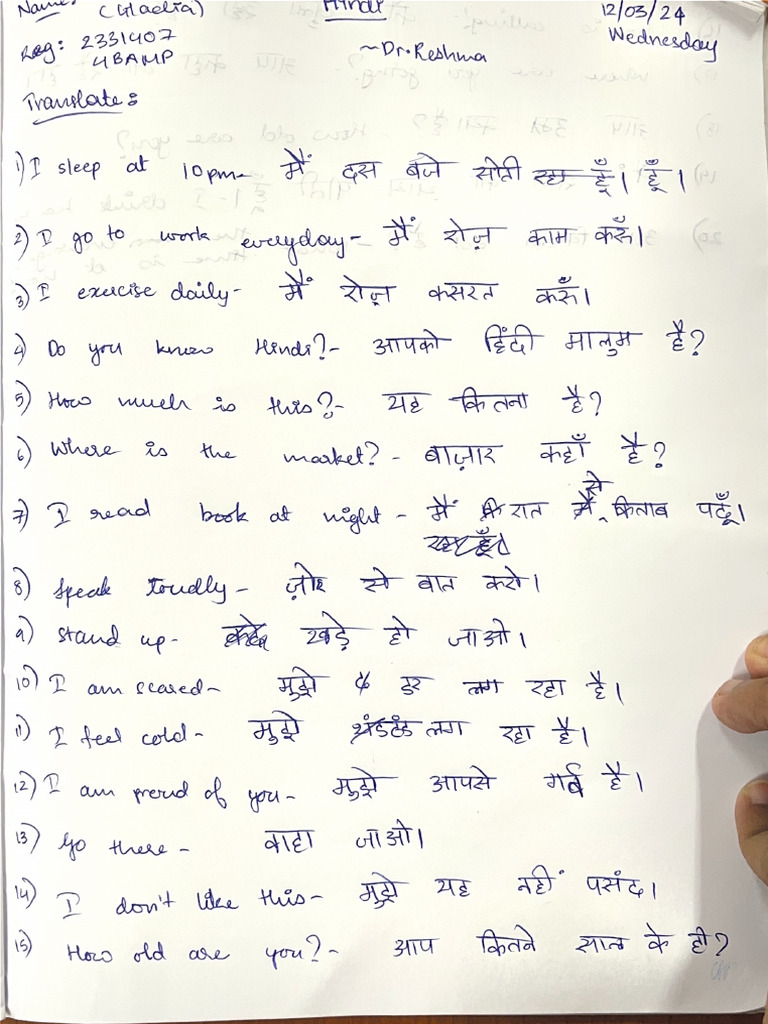 Name: (Gladia) Hindi 12/03/24
Reg: 2331407 ~Dr. Reshma Wednesday
4BAMP
Translate:
1) I sleep at 10pm- मैं दस बजे सोती रहा हूँ। हूँ।
2) I go to work everyday- मैं रोज़ काम करूँ।
3) I exercise daily- मैं रोज़ कसरत करूँ।
4) Do you know Hindi?- आपको हिंदी मालुम है?
5) How much is this?- यह कितना है?
6) Where is the market?- बाज़ार कहाँ है?
7) I read book at night- मैं रात में से किताब पढूँ।
रहा हूँ।
8) Speak loudly- ज़ोर से बात करो।
9) Stand up- खड़े हो जाओ।
10) I am scared- मुझे डर लग रहा है।
11) I feel cold- मुझे थंड ठंड लग रहा है।
12) I am proud of you- मुझे आपसे गर्ब है।
13) Go there- वाहा जाओ।
14) I don't like this- मुझे यह नहीं पसंद।
15) How old are you?- आप कितने साल के हो?